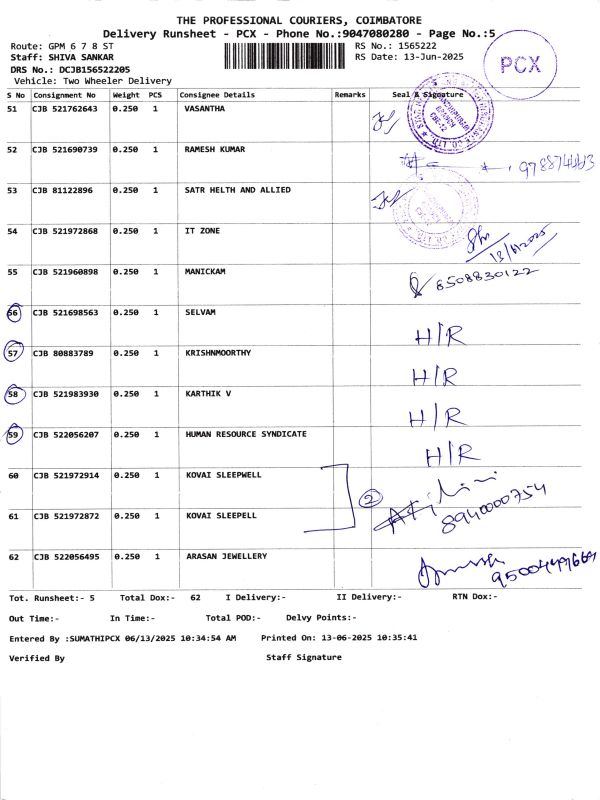 THE PROFESSIONAL COURIERS, COIMBATORE
Delivery Runsheet - PCX - Phone No.:9047080280 - Page No.:5
Route: GPM 6 7 8 ST RS No.: 1565222
Staff: SHIVA SANKAR RS Date: 13-Jun-2025
DRS No.: DCJB156522205
Vehicle: Two Wheeler Delivery
PCX
S No Consignment No Weight PCS Consignee Details Remarks Seal & Signature
51 CJB 521762643 0.250 1 VASANTHA
52 CJB 521690739 0.250 1 RAMESH KUMAR
53 CJB 81122896 0.250 1 SATR HELTH AND ALLIED
54 CJB 521972868 0.250 1 IT ZONE
13/6/2025
55 CJB 521960898 0.250 1 MANICKAM 8508830122
56 CJB 521698563 0.250 1 SELVAM H/R
57 CJB 80883789 0.250 1 KRISHNMOORTHY H/R
58 CJB 521983930 0.250 1 KARTHIK V H/R
59 CJB 522056207 0.250 1 HUMAN RESOURCE SYNDICATE H/R
60 CJB 521972914 0.250 1 KOVAI SLEEPWELL
2 8940000754
61 CJB 521972872 0.250 1 KOVAI SLEEPELL
62 CJB 522056495 0.250 1 ARASAN JEWELLERY
Tot. Runsheet:- 5 Total Dox:- 62 I Delivery:- II Delivery:- RTN Dox:-
Out Time:- In Time:- Total POD:- Delvy Points:-
Entered By :SUMATHIPCX 06/13/2025 10:34:54 AM Printed On: 13-06-2025 10:35:41
Verified By Staff Signature